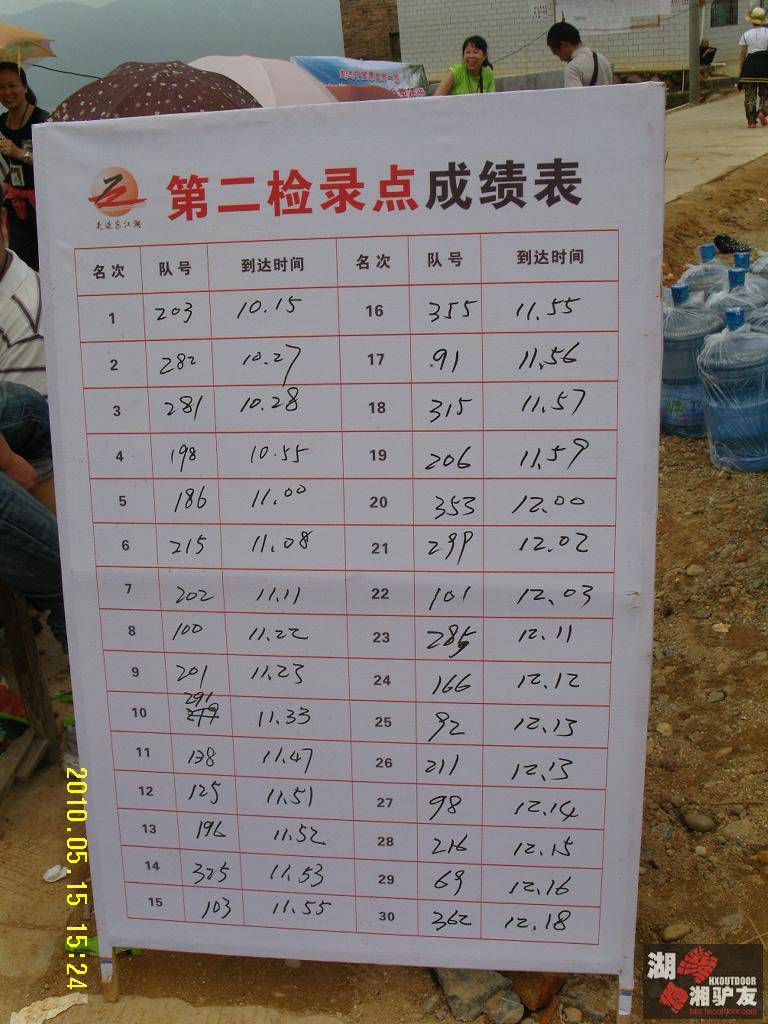 第二检录点成绩表
走进东江湖
名次 队号 到达时间 名次 队号 到达时间
1 203 10.15 16 355 11.55
2 282 10.27 17 91 11.56
3 281 10.28 18 315 11.57
4 198 10.55 19 206 11.59
5 186 11.00 20 353 12.00
6 215 11.08 21 299 12.02
7 202 11.11 22 101 12.03
8 100 11.22 23 285 12.11
9 201 11.23 24 166 12.12
10 291 11.33 25 92 12.13
11 138 11.47 26 211 12.13
12 125 11.51 27 98 12.14
13 196 11.52 28 216 12.15
14 325 11.53 29 69 12.16
15 103 11.55 30 362 12.18
2010.05.15 15:24
湖湘驴友
HXOUTDOOR
bbs.hxoutdoor.com